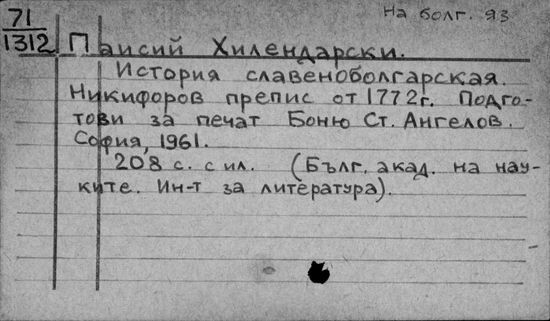 71
1312
На болг. яз
Паисий Хилендарски.
История славеноболгарская.
Никифоров препис от 1772г. Подго-
тови за печат Боню Ст. Ангелов.
София, 1961.
208 с. с ил. (Бълг. акад. на нау-
ките. Ин-т за литература).